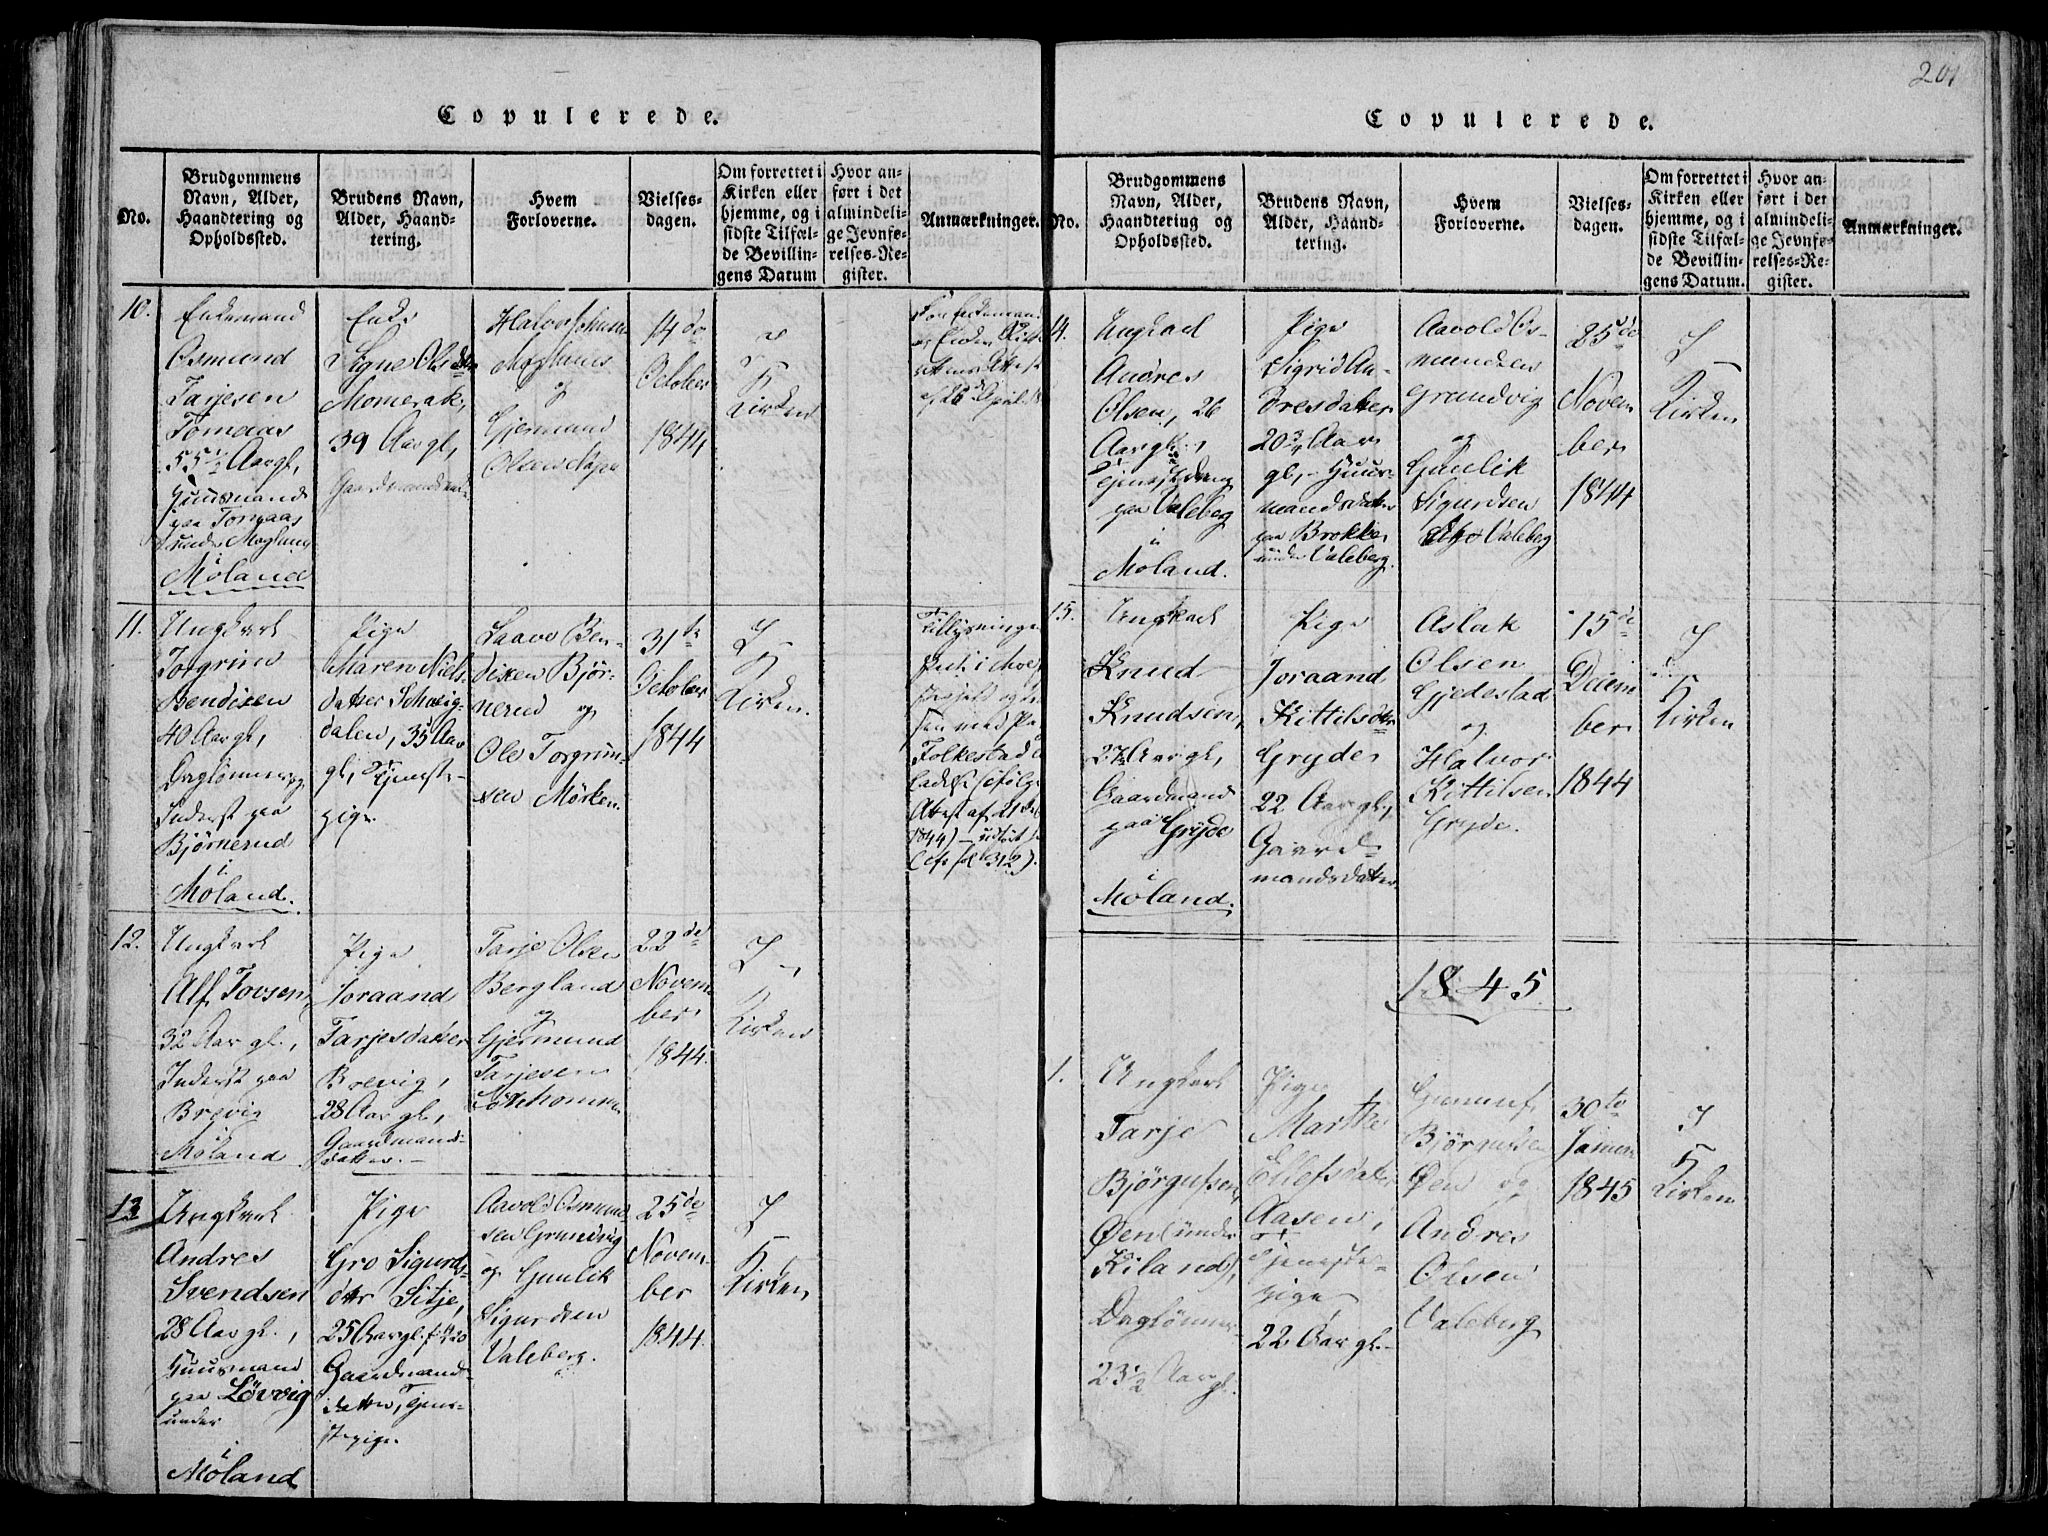 201
Copulerede.
No.
Brudgommens
Navn, Alder,
Haandtering og
Opholdssted.
Brudens Navn,
Alder, Haand-
tering.
Hvem
Forloverne.
Vielses-
dagen.
Om forrettet i
Kirken eller
hjemme, og i
sidste Tilfæl-
de Bevillin-
gens Datum
Hvor an-
ført i det
almindeli-
ge Jevnfø-
relses-Re-
gister.
Anmærkninger.
10.
Enkemand
Osmund
Tarjesen
Tomaas
55 1/2 Aar gl,
Huusmand
paa Tomaas
under
Moland
Enke
Signe Olsdtr
Momrak,
39 Aar gl,
Halvor Johnsen
og
Gjermund
Olsen
14de
October
1844
Kirken
11.
Ungkarl
Torgrim
Bendixen
40 Aar gl,
Daglønner og
Inderst paa
Bjørnerud
i
Moland.
Pige
Maren Niels-
datter
dalen, 35 Aar
gl, Tjeneste-
pige
Laave Ben-
dixen Bjør-
nerud og
Ole Torgrim-
sen Mörken
31te
October
1844
I
Kirken.
Tillysningen
Folkestad
Attest af 21de
1844)
312).
12.
Ungkarl
Alf Tovsen,
32 Aar gl.,
Inderst paa
Brevig
i
Moland
Pige
Joraand
Tarjesdatter
Brevig,
28 Aar gl,
Gaardmands-
datter.
Tarje Olsen
Bergland
og
Gjermund
Tarjesen
22de
Novem-
ber
1844.
I
Kirken
13
Ungkarl
Andres
Svendsen
28 Aar gl.,
Huusmand
paa Lövvig
under
i
Moland
Pige
Gro Sigurds-
dtr Sitje,
25 Aar gl.
Gaardmands-
datter, Tjene-
stepige.
Aavold Osmund-
sen Grundvig
og Gunlik
Sigurdsen
Valeberg.
25de
Novem-
ber
1844.
I
Kirken
Copulerede.
No.
Brudgommens
Navn, Alder,
Haandtering og
Opholdssted.
Brudens Navn,
Alder, Haand-
tering.
Hvem
Forloverne.
Vielses-
dagen.
Om forrettet i
Kirken eller
hjemme, og i
sidste Tilfæl-
de Bevillin-
gens Datum.
Hvor an-
ført i det
almindeli-
ge Jevnfø-
relses-Re-
gister.
Anmærkninger.
14.
Ungkarl
Andres
Olsen, 26
Aar gl.,
Tjenestedreng
paa Valeberg
i
Moland.
Pige
Sigrid An-
dresdatter
20 3/4 Aar
gl, Huus-
mandsdatter
paa Brokke
under Valeberg.
Aavold Os-
mundsen
Grundvig
og
Gunlik
Sigurdsen
Valeberg
25de
Novem
ber
1844
I
Kirken
15.
Ungkarl
Knud
Knudsen,
27 Aar gl,
Gaardmand
paa Gryde
i
Moland.
Pige
Joraand
Kittilsdtr
Gryde
22 Aar gl,
Gaard-
mandsdatter
Aslak
Olsen
Gjedestad
og
Halvor
Kittilsen
Gryde.
15de
Decem
ber
1844
I
Kirken
1845
1.
Ungkarl
Tarje
Bjørgufsen,
Øen (under
Kiland),
Daglönner
23 1/2 Aar gl.
Pige
Marthe
Ellefsdatter
Aasen,
Tjeneste-
pige
22 Aar gl.
Bjørgufsen
Øen og
Andres
Olsen
Valeberg
30te
Januar
1845
I
Kirken